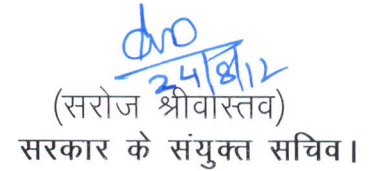 24/8/12
(सरोज श्रीवास्तव)
सरकार के संयुक्त सचिव।